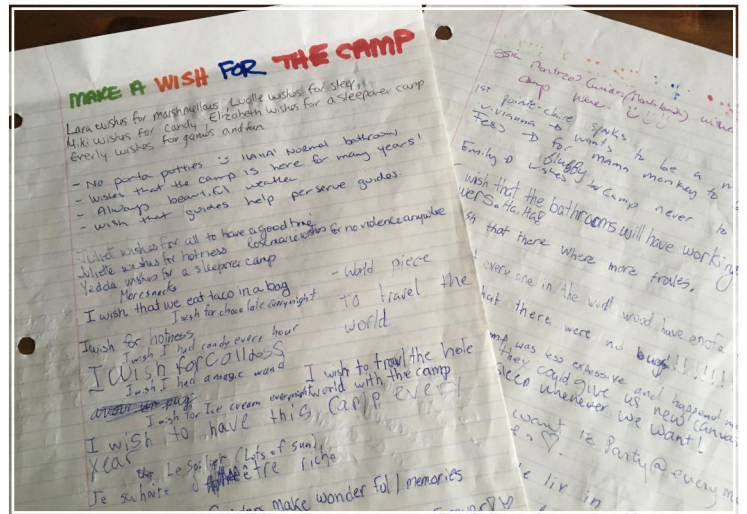 MAKE A WISH FOR THE CAMP
Lara wishes for marshmellows, Lucille wishes for sleep,
Miki wishes for candy, Elizabeth wishes for a sleepover camp
Everly wishes for games and fun
- No porta potties HAHA! Normal bathrooms
- Wishes that the camp is here for many years!
- Always beautiful weather
- wish that guides help perserve guides.
Juliet wishes for all to have a good time
Juliette wishes for hotness Rosemarie wishes for no violence anywhere
Yedda wishes for a sleepover camp
More snacks
I wish that we eat taco in a bag
I wish for chocolate every night
- World piece
I wish for hotness
To travel the
world
I wish I had candy every hour
I wish for colldess
I wish I had a magic wand
I wish to travl the hole
world with the camp
I wish for Ice cream everynight
I wish to have this camp every
year
Le soleil (Lots of sun)
Je suhaite être riche
make wonder full memories
camp
1st pointe-claire sparks
Vivianna → wants to be a
→ for mama monkey to
Emily → wishes camp never to
wish that the bathrooms will have working
Ha, Ha
that there where more trales.
every one in the wurld wood have
that there were no bugs!!!!!!
was less expessive and happend
they could give us new canvas
sleep whenever we want!
want to Party @ every
liv in